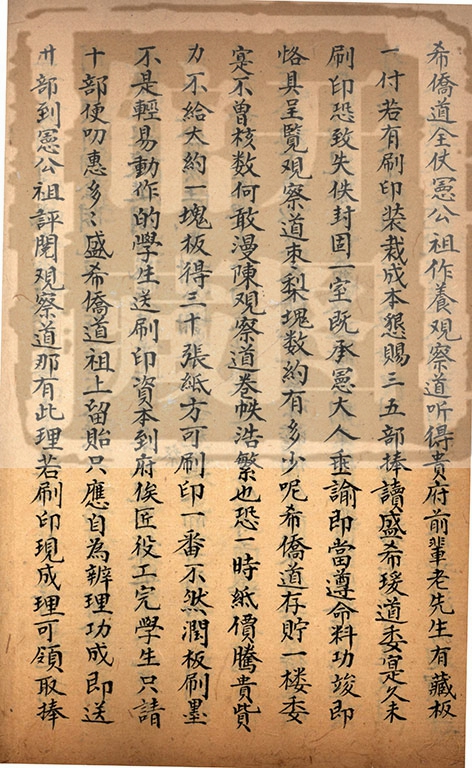 希僑道全仗憲公祖作養观察道听得貴府前輩老先生有藏板
一付若有刷印装裁成本懇賜三五部捧讀盛希瑗道委寔久未
刷印恐致失佚封固一室既承憲大人垂諭即當遵命料功竣即
恪具呈覽观察道枣梨塊数約有多少呢希僑道存貯一楼委
寔不曾核数何敢漫陳观察道卷帙浩繁也恐一時紙價騰貴貲
力不給大約一塊板得三十張紙方可刷印一番不然潤板刷墨
不是輕易動作的學生送刷印資本到府俟匠役工完學生只請
十部便叨惠多〻盛希僑道祖上留貽只應自為辦理功成即送
卄部到憲公祖評閱观察道那有此理若刷印現成理可領取捧